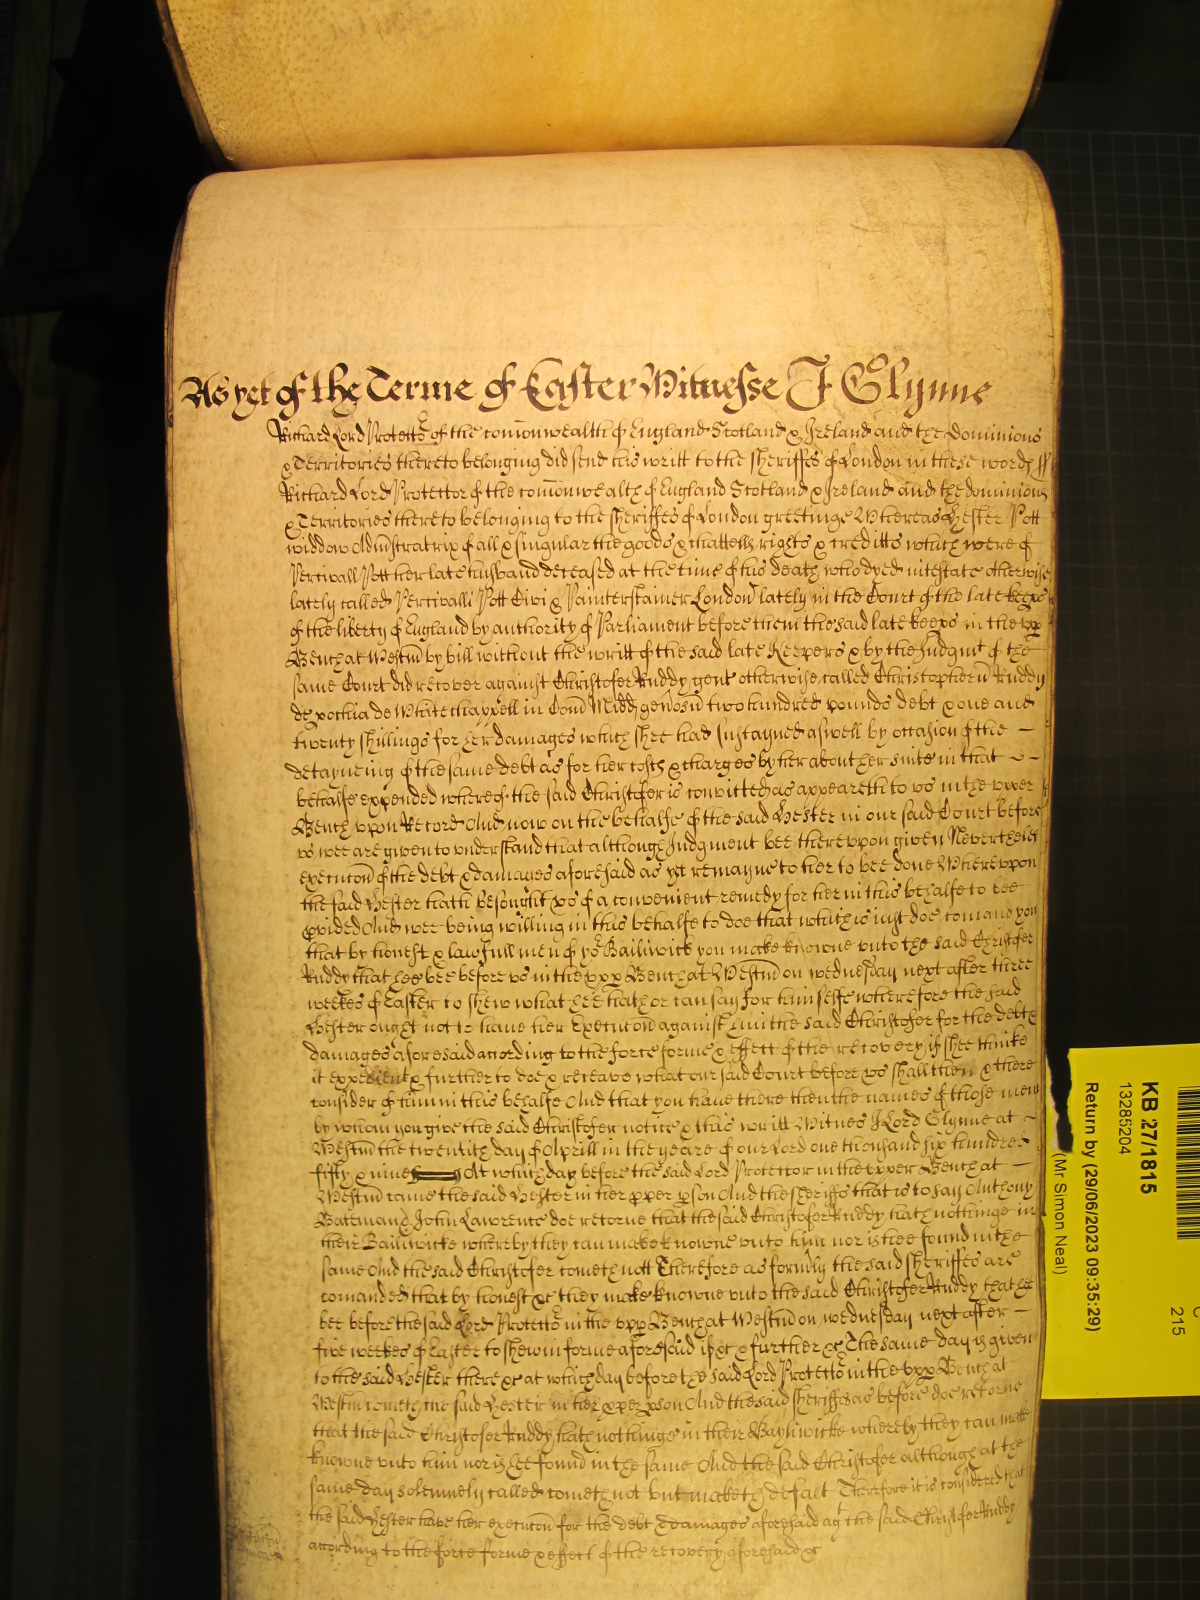 As yet of the Terme of Easter Witnesse J Glynne
Richard Lord Protector of the comonwealth of England Scotland & Ireland and the Dominions
& Territories thereto belonging did send his writt to the sheriffes of London in these words //
Richard Lord Protector of the comonwealth of England Scotland & Ireland and the dominions
& Territories thereto belonging to the sheriffes of London greetinge Whereas Hester Pott
widdow Administratrix of all & singular the goods & chattells rights & creditts which were of
Percivall Pott her late husband deceased at the time of his death who dyed intestate otherwise
lately called Percivalli Pott Civi & Painterstainer London lately in the Court of the late keeps
of the liberty of England by authority of Parliament before them the said late keeps in the upp
Bench at Westm by bill without the writt of the said late Keepers & by the Judgmt of the
same Court did recover against Christofer Ruddy gent otherwise called Christopherū Ruddy
de pochia de Whitechappell in Com Midd genosū two hundred pounds debt & one and
twenty shillings for her damages which shee had sustayned aswell by occasion of the
detayneing of the same debt as for her costs & charges by her about her suite in that
behalfe expended whereof the said Christofer is convicted as appeareth to us in the upper
Bench upon Record And now on the behalfe of the said Hester in our said Court before
us wee are given to understand that although Judgment bee thereupon given Neverthelesse
execucon of the debt & damages aforesaid as yet remayne to her to bee done Whereupon
the said Hester hath besought us of a convenient remedy for her in this behalfe to bee
pvided And wee being willing in this behalfe to doe that which is just doe comand you
that by honest & lawfull men of yor Bailiwick you make knowne unto the said Christofer
Ruddy that hee bee before us in the upp Bench at Westm on wednesday next after three
weekes of Easter to shew what hee hath or can say for himselfe wherefore the said
Hester ought not to have her Execucon against him the said Christofer for the debt &
damages aforesaid according to the force forme & effect of the recovery if shee thinke
it expedient & further to doe & receave what our said Court before us shall then & there
consider of him in this behalfe And that you have there then the names of those men
by whom you give the said Christofer notice & this writt Witnes J Lord Glynne at
Westm the twentith day of Aprill in the yeare of our Lord one thousand six hundred
fifty & nine At which day before the said Lord Protector in the upper Bench at
Westm came the said Hester in her pper pson And the sheriffs that is to say Anthony
Bateman & John Lawrence doe retorne that the said Christofer Ruddy hath nothinge in
their Bailiwicke whereby they can make knowne unto him nor is hee found in the
same And the said Christofer cometh nott Therefore as formly the said sheriffes are
comanded that by honest &c they make knowne unto the said Christofer Ruddy that he
bee before the said Lord Protector in the upp Bench at Westm on wednesday next after
five weekes of Easter to shew in forme aforesaid if &c & further &c The same day is given
to the said Hester there &c at which day before the said Lord Protector in the upp Bench at
Westm cometh the said Hester in her pper pson And the said sheriffes as before doe retorne
that the said Christofer Ruddy hath nothinge in their Bayliwicke whereby they can make
knowne unto him nor is hee found in the same And the said Christofer although at the
same day solemnely called cometh not but maketh defalt Therefore it is considered that
the said Hester have her execucon for the debt & damages aforesaid agt the said Christofer Ruddy
according to the force forme & effect of the recovery aforesaid &c
KB 27/1815
13285204
Return by (29/06/2023 09:35:29)
(Mr Simon Neal)
215